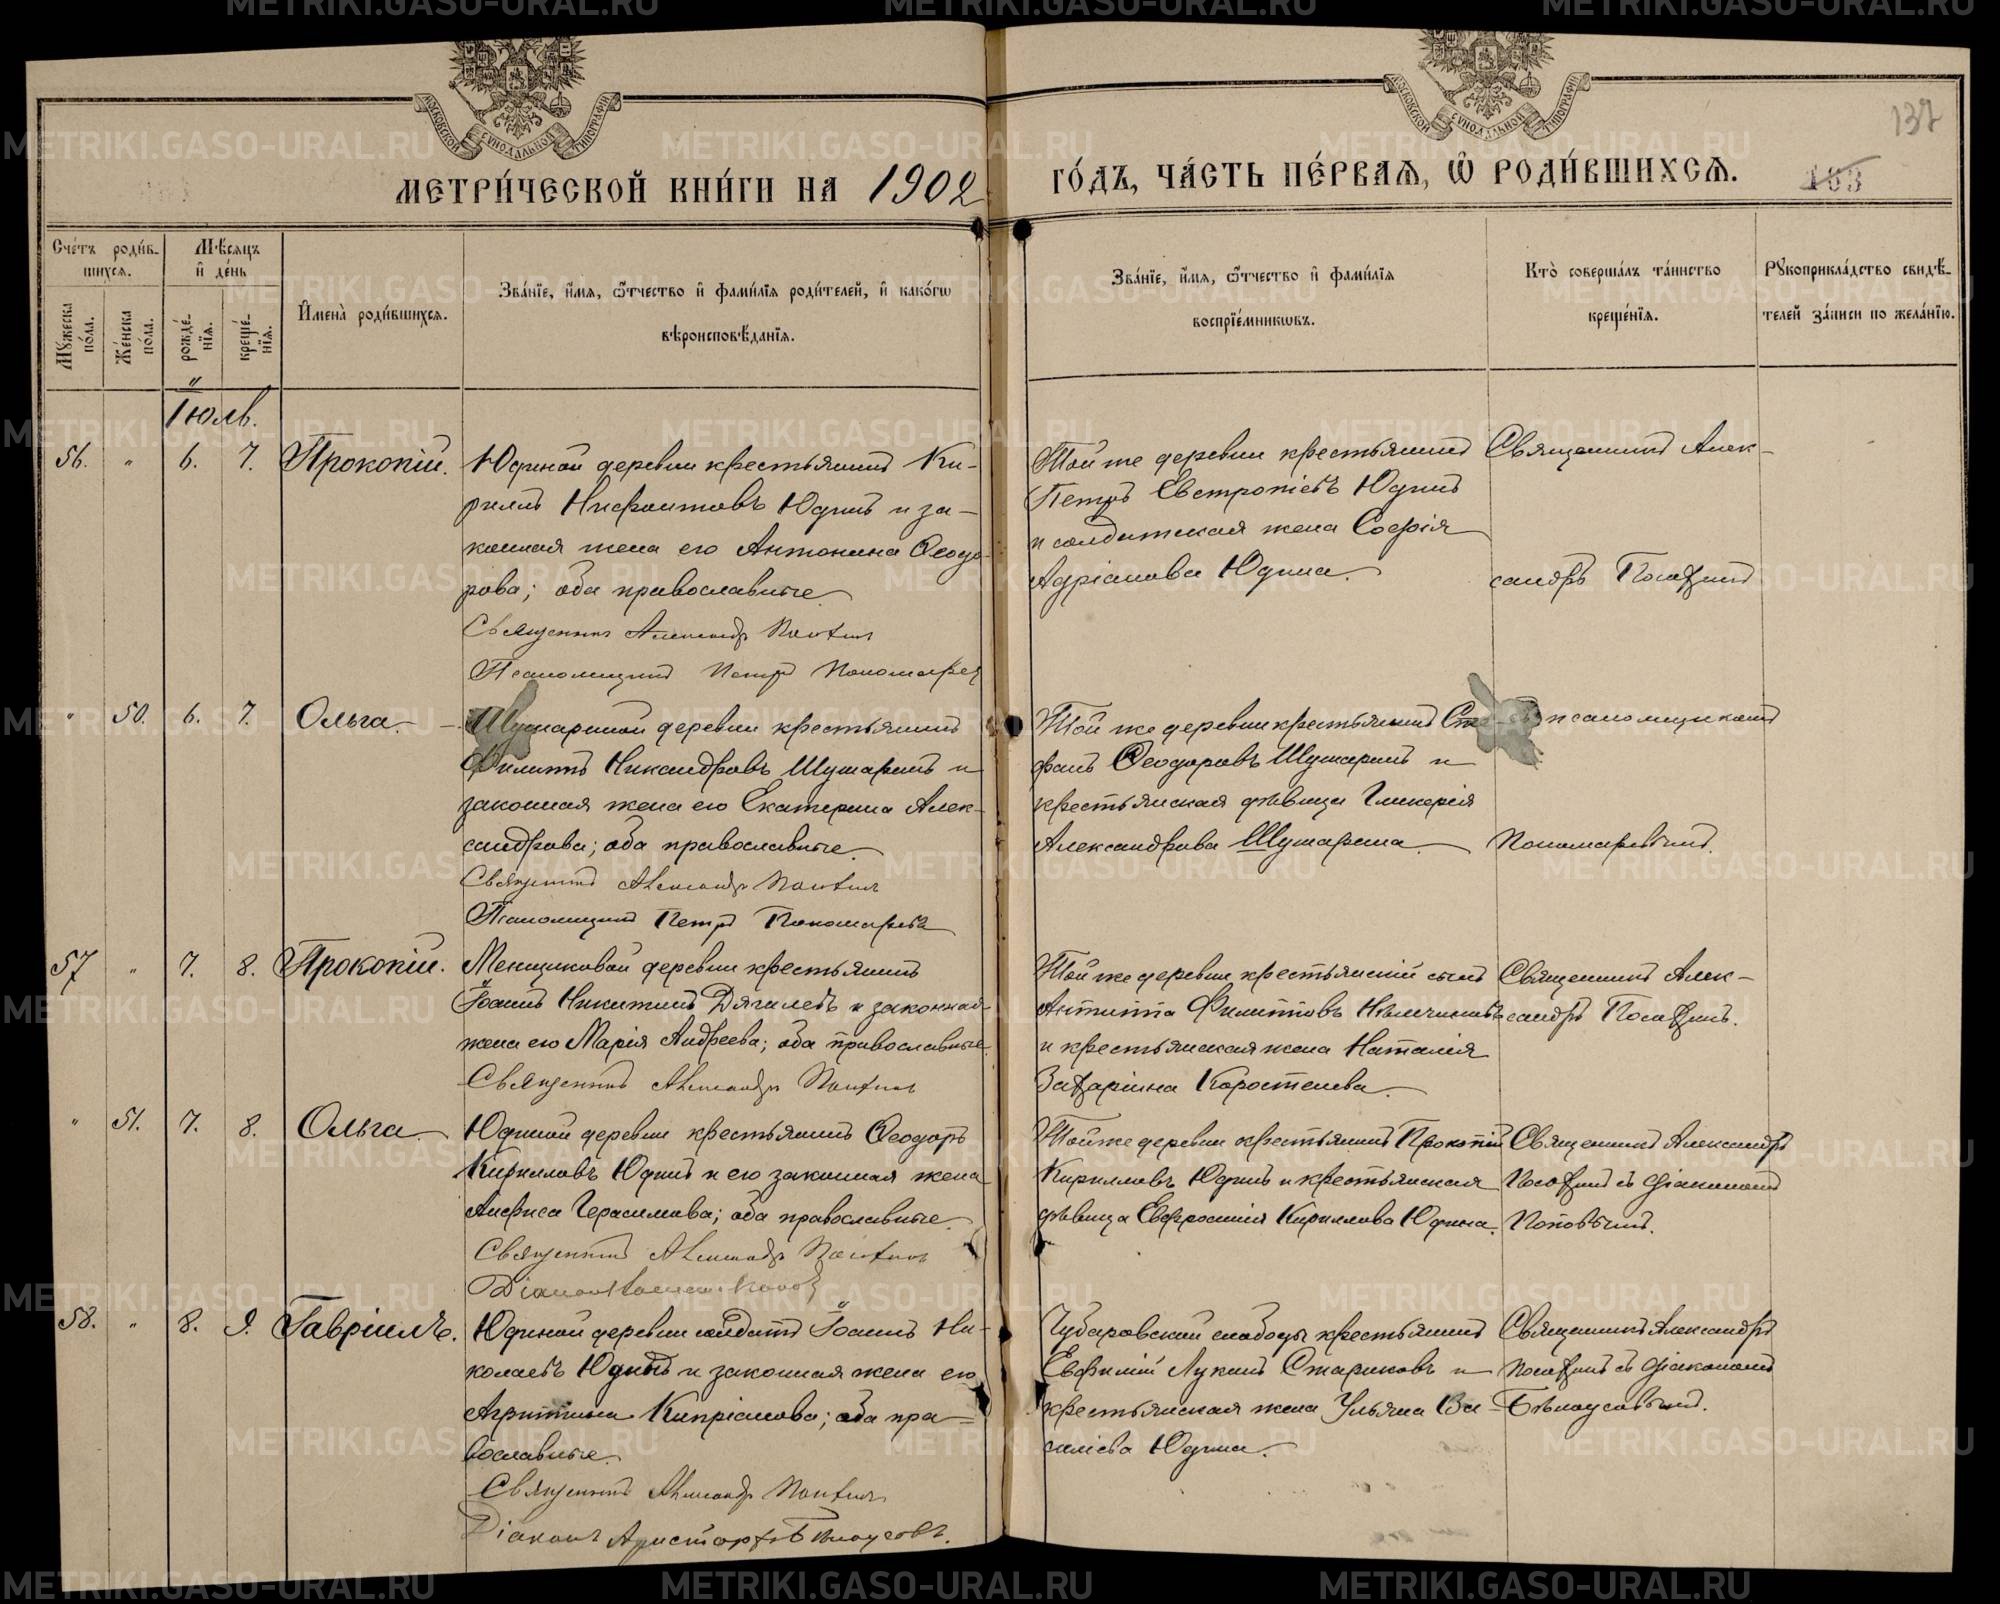 МЕТРИ́ЧЕСКОЙ КНИ́ГИ НА 1902
ГО́ДЪ, ЧА́СТЬ ПЕ́РВАѦ, Ѡ РОДИ́ВШИХСѦ.
137
103
Сче́тъ роди́в-
шихсѧ.
Мѣ́сѧцъ
и де́нь
Му́жеска по́ла.
Же́нска по́ла.
рожде́-
нїѧ.
креще́-
нїѧ.
Имена̀ роди́вшихсѧ.
Зва́нїе, и́мѧ, ѻ́тчество и фами́лїѧ роди́телей, и како́гѡ
вѣроисповѣ́данїѧ.
Зва́нїе, и́мѧ, ѻ́тчество и фами́лїѧ
воспрїе́мникѡвъ.
Кто̀ соверша́лъ та́инство
креще́нїѧ.
Рꙋкоприкла́дство свидѣ́-
телей за́писи по жела́нїю.
Іюль.
56. " 6. 7. Прокопій.
Юдиной деревни крестьянинъ Ки-
риллъ Нифонтовъ Юдинъ и за-
конная жена его Антонина Ѳеодо-
рова; оба православные.
Священникъ Александръ
Псаломщикъ Петръ Пономаревъ
Той же деревни крестьянинъ
Петръ Евстропіевъ Юдинъ
и солдатская жена Софія
Адріанова Юдина.
Священникъ Алек-
сандръ
" 50. 6. 7. Ольга.
Шушариной деревни крестьянинъ
Филиппъ Никандровъ Шушаринъ и
законная жена его Екатерина Алек-
сандрова; оба православные.
Священникъ Александръ
Псаломщикъ Петръ Пономаревъ
Той же деревни крестьянинъ Сте-
фанъ Ѳеодоровъ Шушаринъ и
крестьянская дѣвица Гликерія
Александрова Шушарина.
съ псаломщикомъ
Пономаревымъ.
57 " 7. 8. Прокопій.
Менщиковой деревни крестьянинъ
Іоаннъ Никитинъ Дягилевъ и законная
жена его Марія Андреева; оба православные.
Священникъ Александръ
Той же деревни крестьянскій сынъ
Антиппа Филипповъ
и крестьянская жена Наталія
Захаріина Коростелева.
Священникъ Алек-
сандръ
" 51. 7. 8. Ольга.
Юдиной деревни крестьянинъ Ѳеодоръ
Кирилловъ Юдинъ и его законная жена
Анфиса Герасимова; оба православные.
Священникъ Александръ
Діаконъ
Той же деревни крестьянинъ Прокопій
Кирилловъ Юдинъ и крестьянская
дѣвица Евфросинія Кириллова Юдина.
Священникъ Александръ
съ діакономъ
Поповымъ.
58. " 8. 9. Гавріилъ.
Юдиной деревни солдатъ Іоаннъ Ни-
колаевъ Юдинъ и законная жена его
Агриппина Кипріанова; оба пра-
вославные.
Священникъ Александръ
Діаконъ Аристархъ Бѣлоусовъ.
Чубаровской слободы крестьянинъ
Евфимій Лукинъ Стариковъ и
крестьянская жена Ульяна Ва-
силіева Юдина.
Священникъ Александръ
съ діакономъ
Бѣлоусовымъ.
METRIKI.GASO-URAL.RU